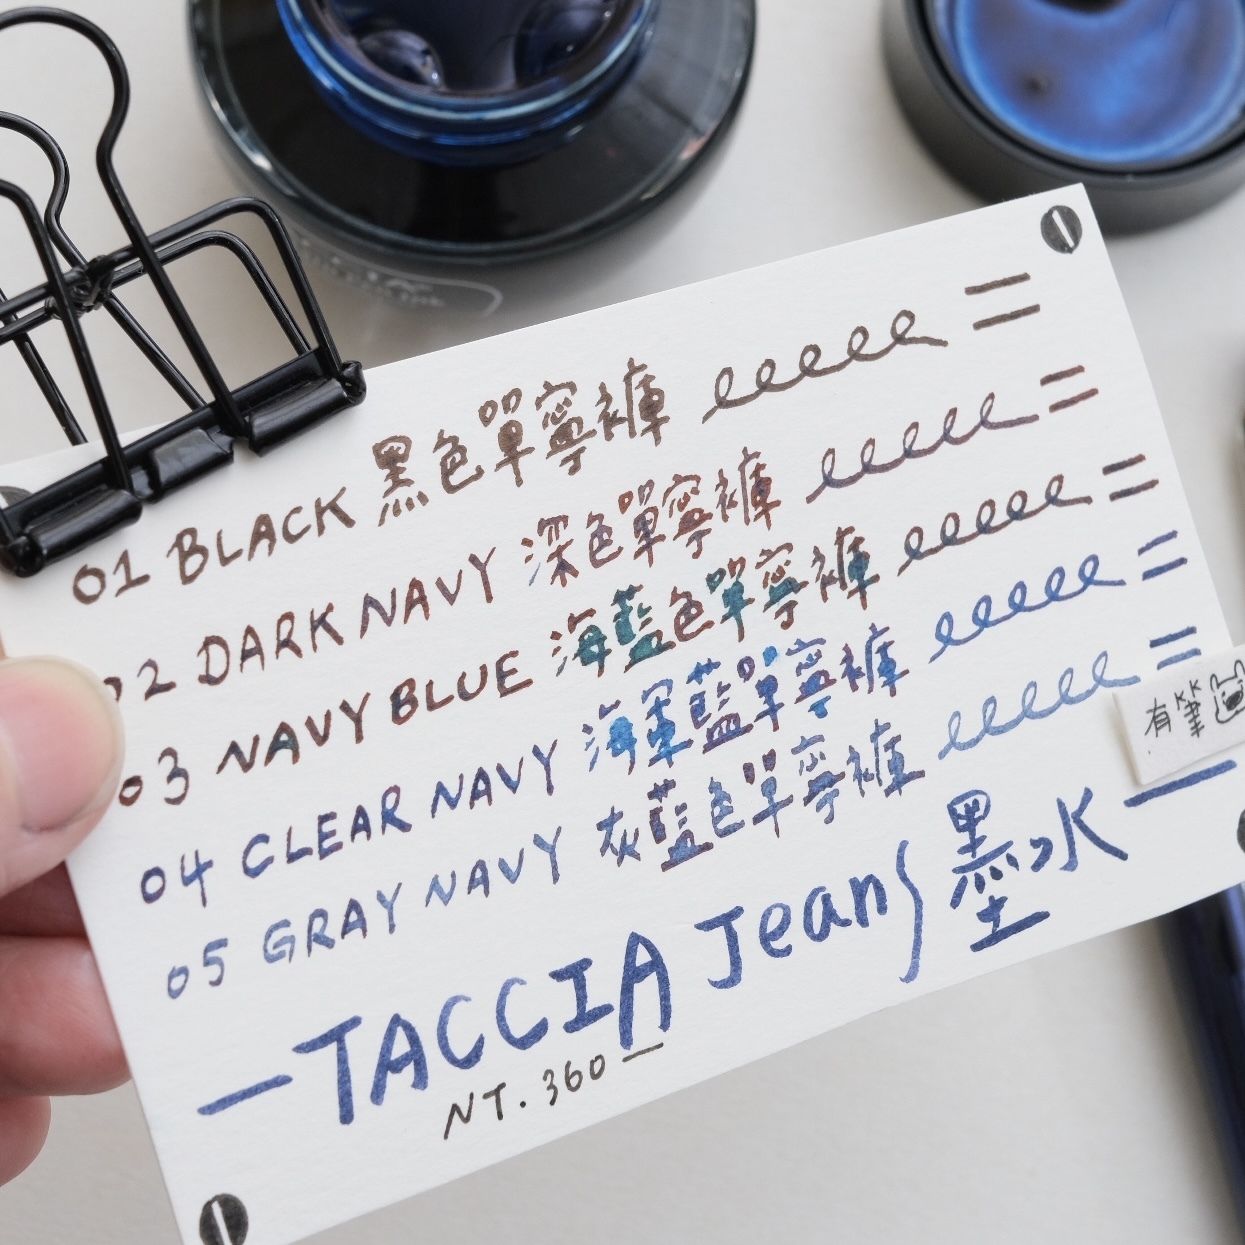 01 BLACK 黑色單寧褲
02 DARK NAVY 深色單寧褲
03 NAVY BLUE 海藍色單寧褲
04 CLEAR NAVY 海軍藍單寧褲
05 GRAY NAVY 灰藍色單寧褲
有筆
—TACCIA Jeans 墨水—
NT. 360—